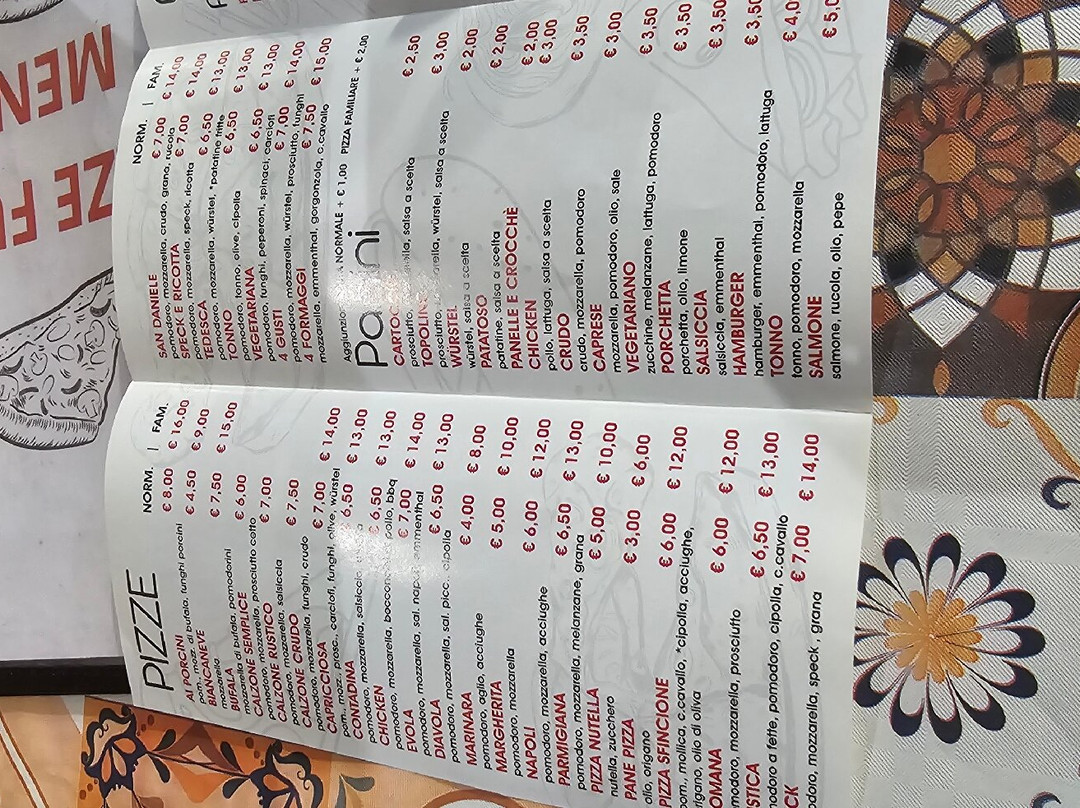 MEN
ZE F
PIZZE
NORM. | FAM.
AI PORCINI € 8,00 € 16,00
pom., mozz. di bufala, funghi porcini
BIANCANEVE € 4,50 € 9,00
mozzarella
BUFALA € 7,50 € 15,00
mozzarella di bufala, pomodorini
CALZONE SEMPLICE € 6,00
pomodoro, mozzarella, prosciutto cotto
CALZONE RUSTICO € 7,00
pomodoro, mozzarella, salsiccia
CALZONE CRUDO € 7,50
pomodoro, mozzarella, funghi, crudo
CAPRICCIOSA € 7,00 € 14,00
pom., mozz., prosc., carciofi, funghi, olive, würstel
CONTADINA 6,50 € 13,00
pomodoro, mozzarella, salsiccia
CHICKEN € 6,50 € 13,00
pomodoro, mozzarella, bocconc pollo, bbq
EVOLA € 7,00 € 14,00
pomodoro, mozzarella, sal. napoli, emmenthal
DIAVOLA € 6,50 € 13,00
pomodoro, mozzarella, sal. picc., cipolla
MARINARA € 4,00 € 8,00
pomodoro, aglio, acciughe
MARGHERITA € 5,00 € 10,00
pomodoro, mozzarella
NAPOLI € 6,00 € 12,00
pomodoro, mozzarella, acciughe
PARMIGIANA € 6,50 € 13,00
pomodoro, mozzarella, melanzane, grana
PIZZA NUTELLA € 5,00 € 10,00
nutella, zucchero
PANE PIZZA € 3,00 € 6,00
olio, origano
PIZZA SFINCIONE € 6,00 € 12,00
pom., mollica, c.cavallo, *cipolla, acciughe,
rigano, olio di oliva
OMANA € 6,00 € 12,00
modoro, mozzarella, prosciutto
STICA € 6,50 € 13,00
odoro a fette, pomodoro, cipolla, c.cavallo
CK € 7,00 € 14,00
doro, mozzarella, speck, grana
NORM. | FAM.
SAN DANIELE € 7,00 € 14,00
pomodoro, mozzarella, crudo, grana, rucola
SPECK E RICOTTA € 7,00 € 14,00
pomodoro, mozzarella, speck, ricotta
TEDESCA € 6,50 € 13,00
pomodoro, mozzarella, würstel, *patatine fritte
TONNO € 6,50 € 13,00
pomodoro, tonno, olive, cipolla
VEGETARIANA € 6,50 € 13,00
pomodoro, funghi, peperoni, spinaci, carciofi
4 GUSTI € 7,00 € 14,00
pomodoro, mozzarella, würstel, prosciutto, funghi
4 FORMAGGI € 7,50 € 15,00
mozzarella, emmenthal, gorgonzola, c.cavallo
Aggiunzion A NORMALE + € 1,00 PIZZA FAMILIARE + € 2,00
Panini
CARTOC € 2,50
prosciutto, salsa a scelta
TOPOLIN € 3,00
prosciutto, würstel, salsa a scelta
WÜRSTEL € 2,00
würstel, salsa a scelta
PATATOSO € 2,00
patatine, salsa a scelta
PANELLE E CROCCHÈ € 2,00
CHICKEN € 3,00
pollo, lattuga, salsa a scelta
CRUDO € 3,50
crudo, mozzarella, pomodoro
CAPRESE € 3,00
mozzarella, pomodoro, olio, sale
VEGETARIANO € 3,50
zucchine, melanzane, lattuga, pomodoro
PORCHETTA € 3,50
porchetta, olio, limone
SALSICCIA € 3,50
salsiccia, emmenthal
HAMBURGER € 3,50
hamburger, emmenthal, pomodoro, lattuga
TONNO € 4,0
tonno, pomodoro, mozzarella
SALMONE € 5,0
salmone, rucola, olio, pepe